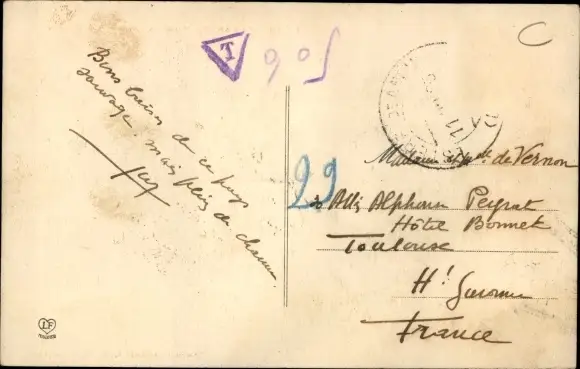 T 0,05
C
Bons baisers de ce pays
sauvage, mais plein de charme.
Madame de Vernon
29
30 Allées Alphonse Peyrat
Hôtel Bonnet
Toulouse
Hte Garonne
France
LF